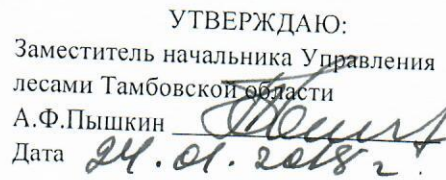 УТВЕРЖДАЮ:
Заместитель начальника Управления
лесами Тамбовской области
А.Ф.Пышкин
Дата 24.01.2018 г.